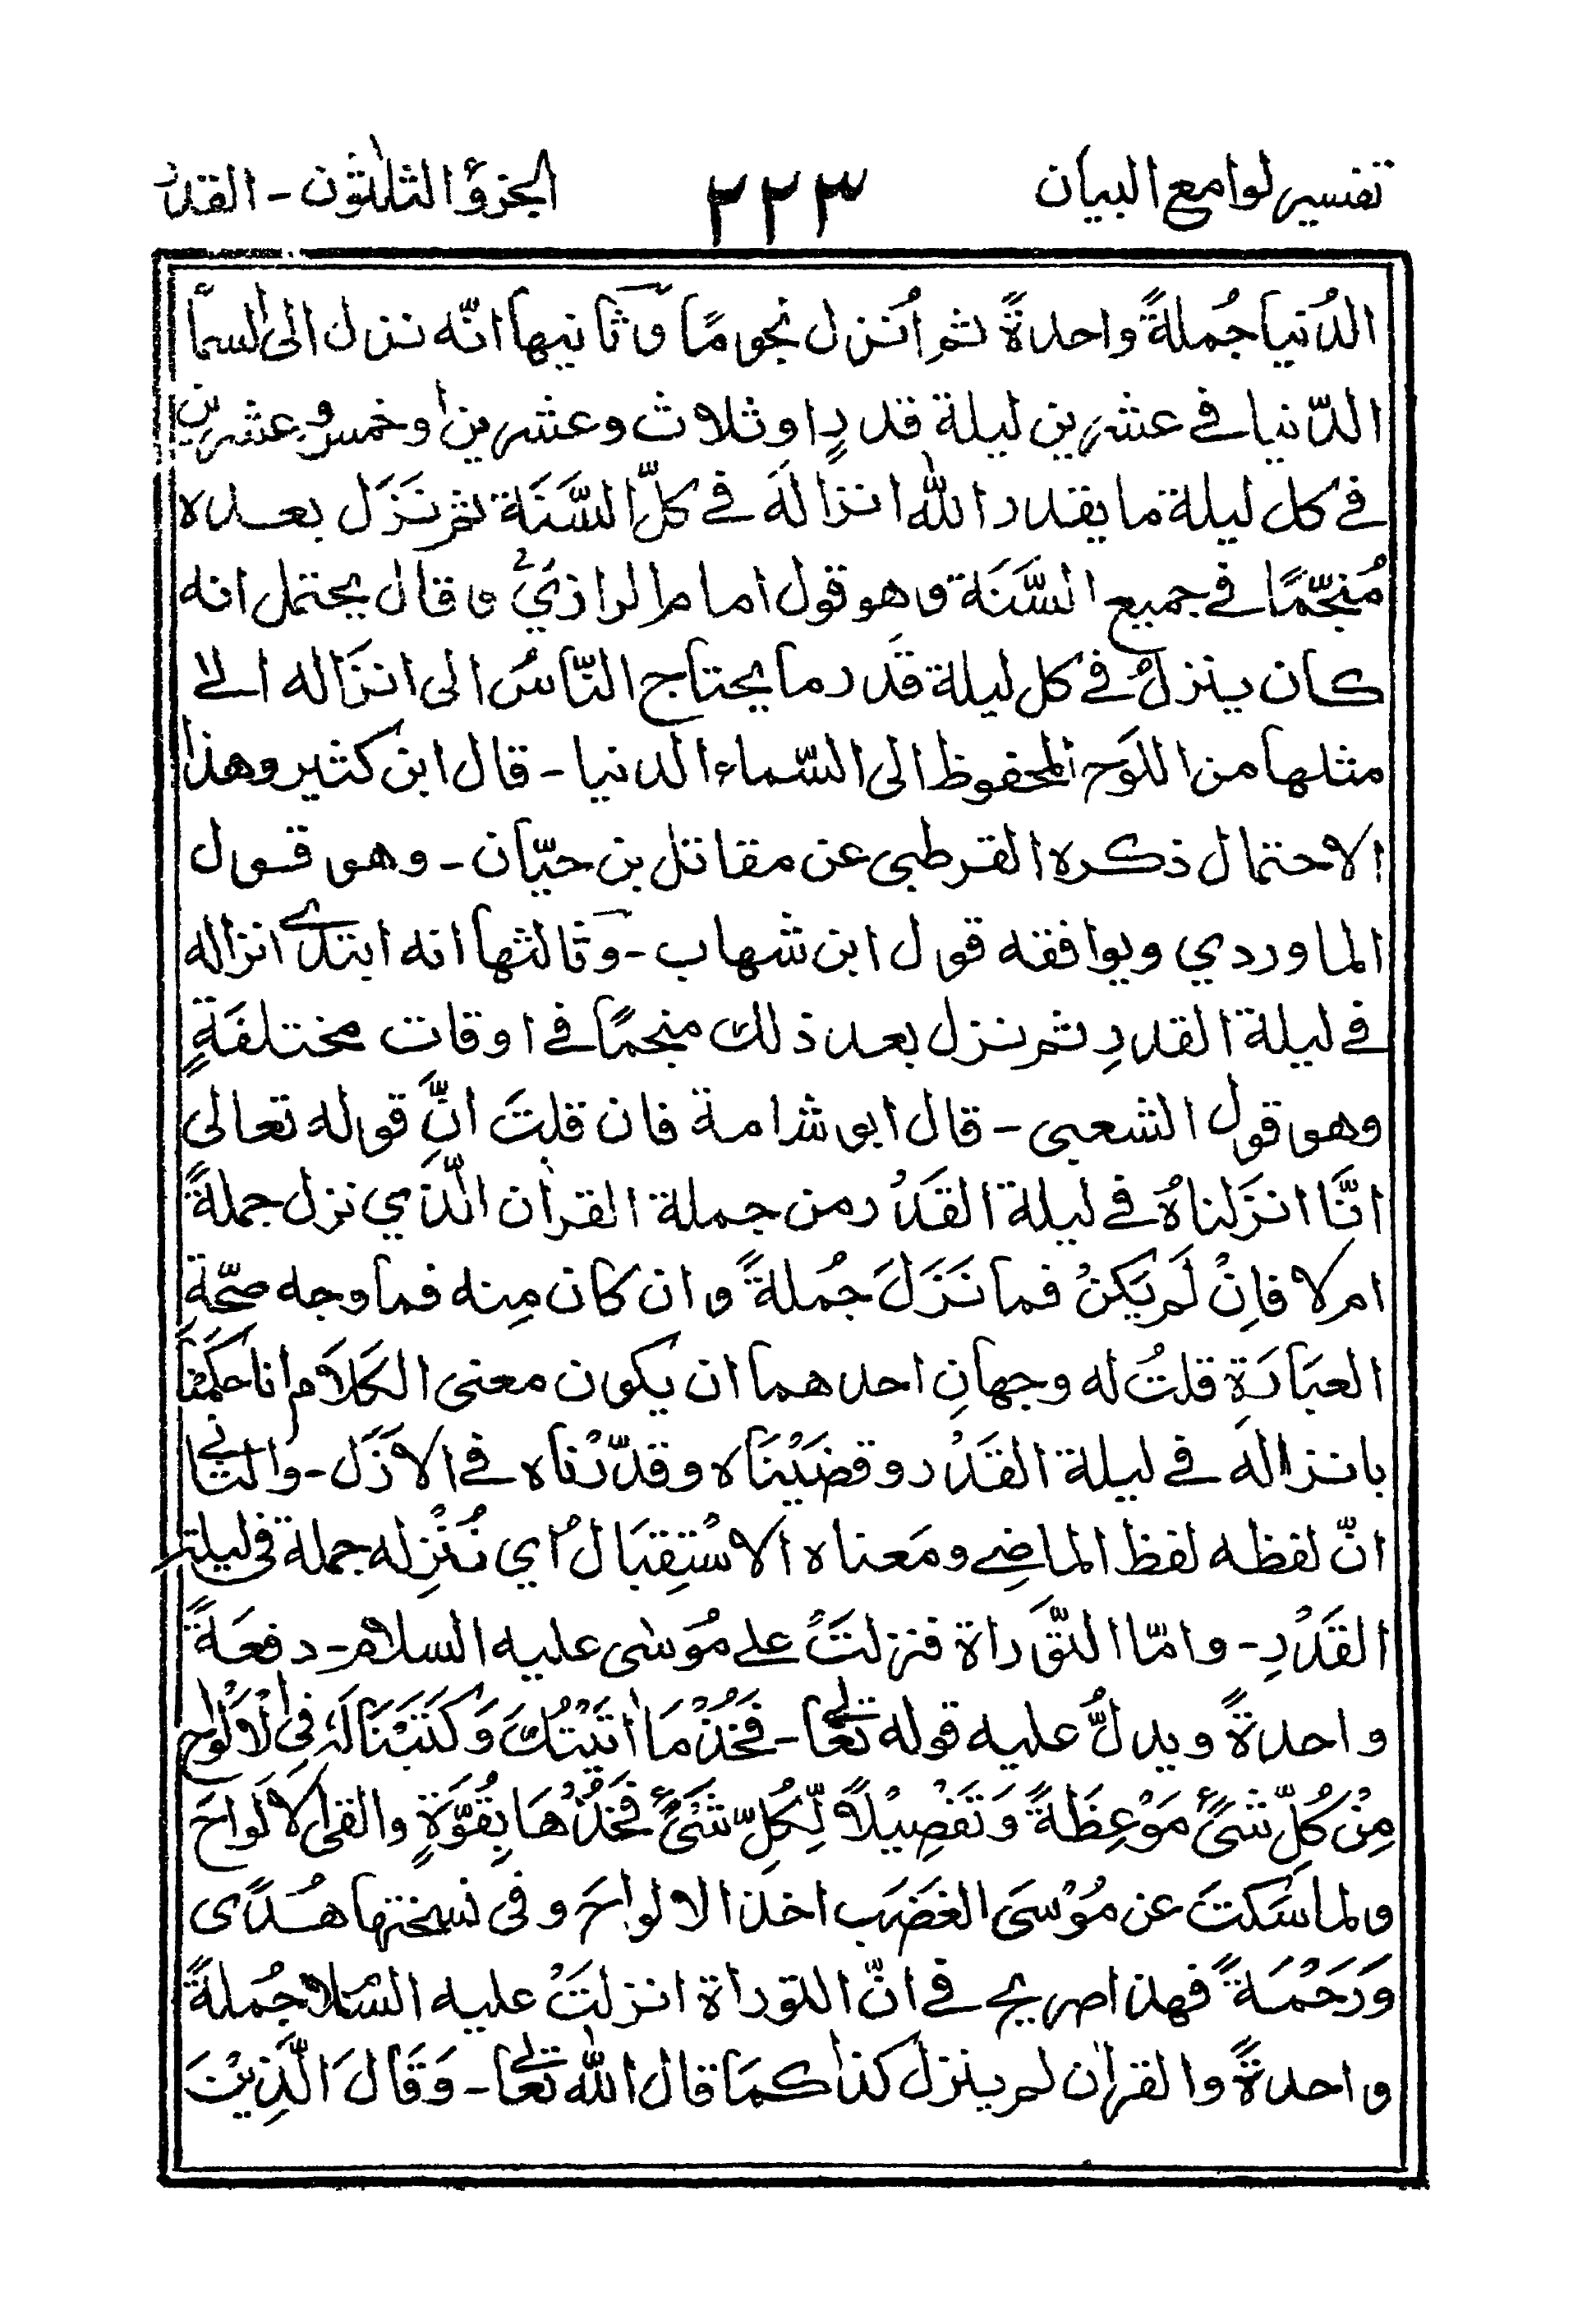 تفسير لوامع البيان ٢٢٣ الجزؤ الثلٰثون - القدر
الدُنيا جُملةً واحدةً ثم اُنزل نجومًا وثانيها انّه نزل الىٰ السمآء
الدّنيا فے عشرين ليلة قدرٍ او ثلاث وعشرين او خمس وعشرين
فے كل ليلة ما يقدر اللّٰه انزالهَ فے كلِّ السَّنَة ثم نَزَل بعده
مُنجّمًا فے جميع السَّنَة وهو قول امام الرازيؒ وقال يحتمل انه
كان ينزلُ فے كل ليلة قَدر ما يحتاج النّاسُ الى انزَاله الے
مثلها من اللوَح المحفوظ الى السّماء الدنيا - قال ابن كثير وهذا
الاحتمال ذكره القرطبى عن مقاتل بن حيّان - وهو قول
الماوردي ويوافقه قول ابن شهاب - وثالثها انه ابتدئ انزاله
فے ليلة القدرِ ثم نزل بعد ذلك منجمًا فے اوقات مختلفَةٍ
وهو قول الشعبى - قال ابو شامة فان قلتَ انَّ قوله تعالى
انَّا انزَلناهُ فے ليلة القَدْر من جملة القراٰن الّذي نزل جملةً
ام لا فاِنْ لَم يَكنْ فما نَزَلَ جُملةً وان كان مِنه فما وجه صحّةِ
العبَارَةِ قلتُ له وجهانِ احدهما ان يكون معنى الكَلاَم انا حَكَمْنا
بانزالهِ فے ليلة القَدْر وقضَيْنَاه وقدّرْناه فے الاَزَل - والثانے
انّ لفظه لفظ الماضِے ومَعناه الاسْتِقبَال اُي نُنْزِله جملة فى ليلة
القَدْرِ - وامّا التَّوراة فنزلتْ علے مُوسٰى عليه السلام - دفعَةً
واحدةً ويدلُّ عليه قوله تعالٰے - فَخُذْ مَا اٰتَيْتُكَ وَكَتَبْنَا لَهٗ فِى الْاَلْوَاحِ
مِنْ كُلِّ شَىْءٍ مَوْعِظَةً وَتَفْصِيْلاً لِّكُلِّ شَىْءٍ فَخُذْهَا بِقُوَّةٍ والقى الاَلَواحَ
ولما سَكتَ عن مُوْسَى الغَضَب اخذ الالواحَ وفى نسختها هُدًى
وَرَحْمَةً فهذا صريح فے انّ التوراة انزلتْ عليه السّلام جُملةً
واحدةً والقراٰن لم ينزل كذا كمَا قال اللّٰه تعالٰے - وَقَالَ الَّذِيْنَ